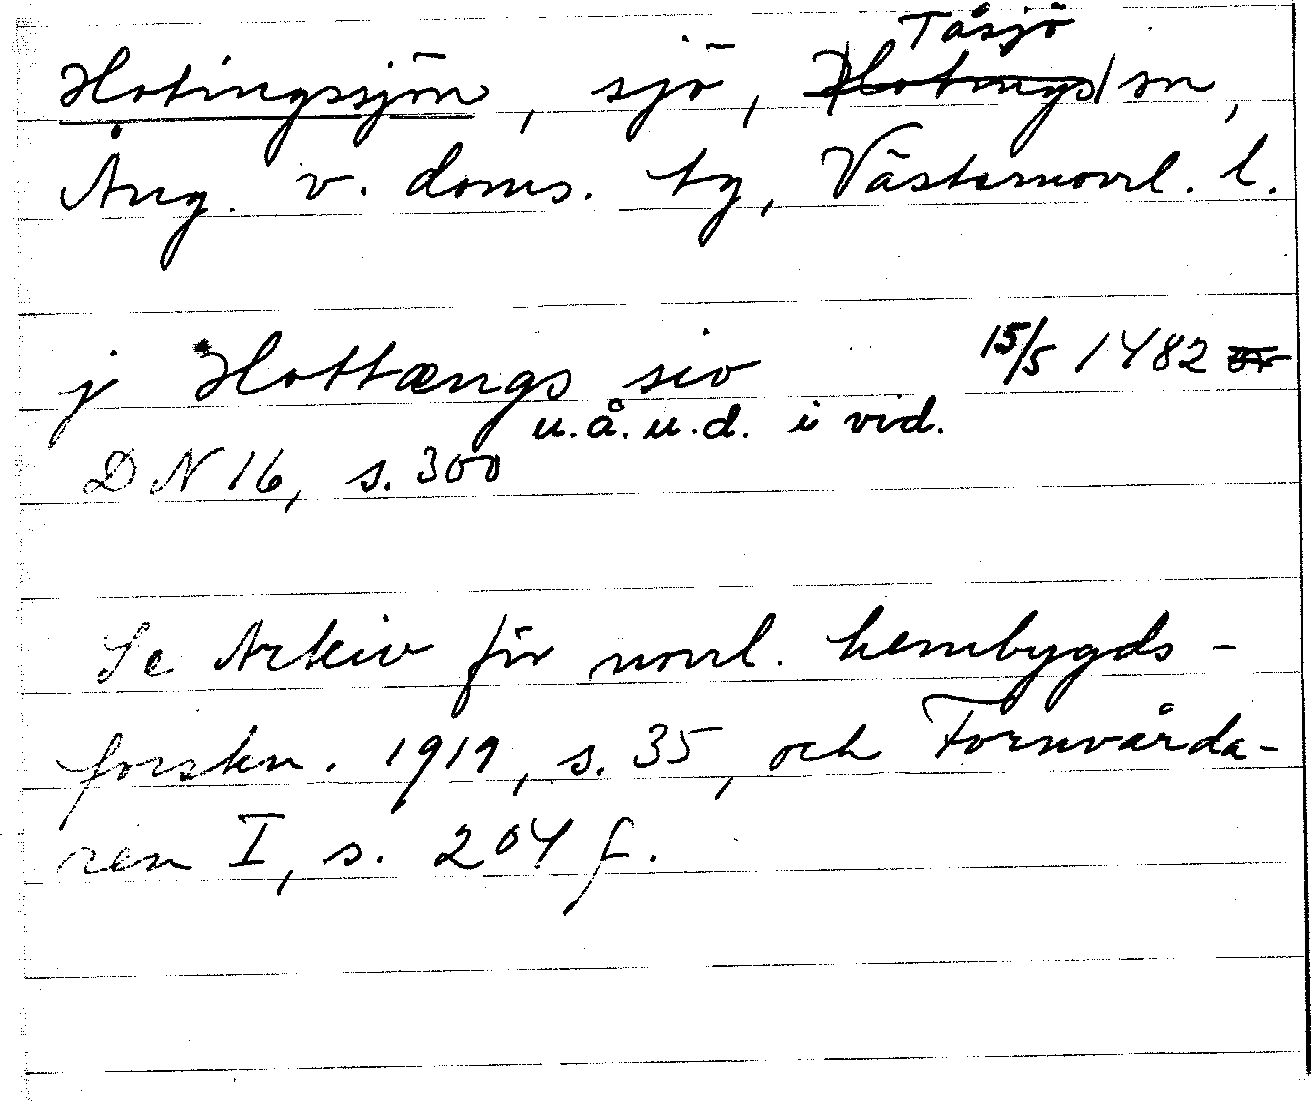 Hotingssjön, sjö, Tåsjö sn,
Ång. v. doms. tg, Västernorrl. l.
j Hottængs sio 15/5 1482
u.å.u.d. i vid.
DN 16, s. 300
Se Arkiv för norrl. hembygds-
forskn. 1919, s. 35, och Fornvårda-
ren I, s. 204 f.